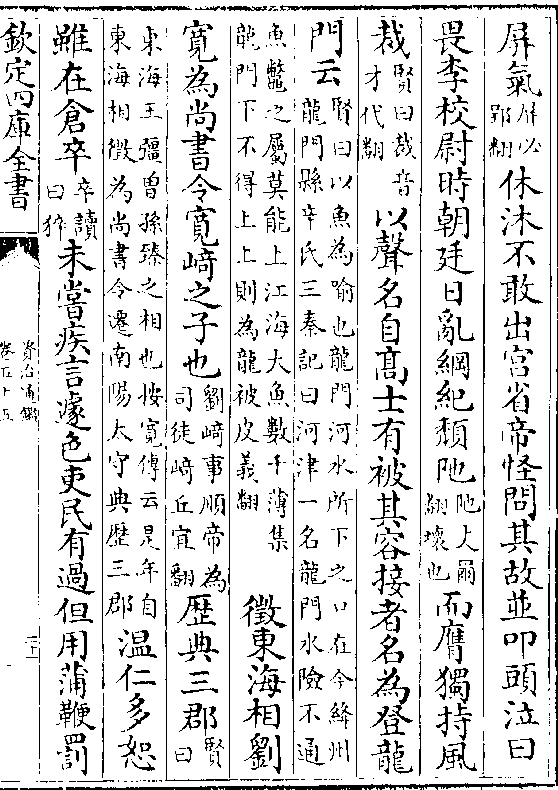 屏氣屏必郢翻休沐不敢出宮省帝怪問其故並叩頭泣曰
畏李校尉時朝廷日亂綱紀頹阤阤大爾翻壞也而膺獨持風
裁賢曰裁音才代翻以聲名自髙士有被其容接者名為登龍
門云賢曰以魚為喻也龍門河水所下之口在今絳州龍門縣辛氏三秦記曰河津一名龍門水險不通
魚鼈之屬莫能上江海大魚數千薄集龍門下不得上上則為龍被皮義翻徵東海相劉
寛為尚書令寛﨑之子也劉﨑事順帝為司徒﨑丘宜翻歴典三郡賢曰
東海王彊曾孫臻之相也按寛傳云是年自東海相徵為尚書令遷南陽太守典歴三郡温仁多恕
雖在倉卒卒讀曰猝未嘗疾言遽色吏民有過但用蒲鞭罰
欽定四庫全書
資治通鑑
卷五十五